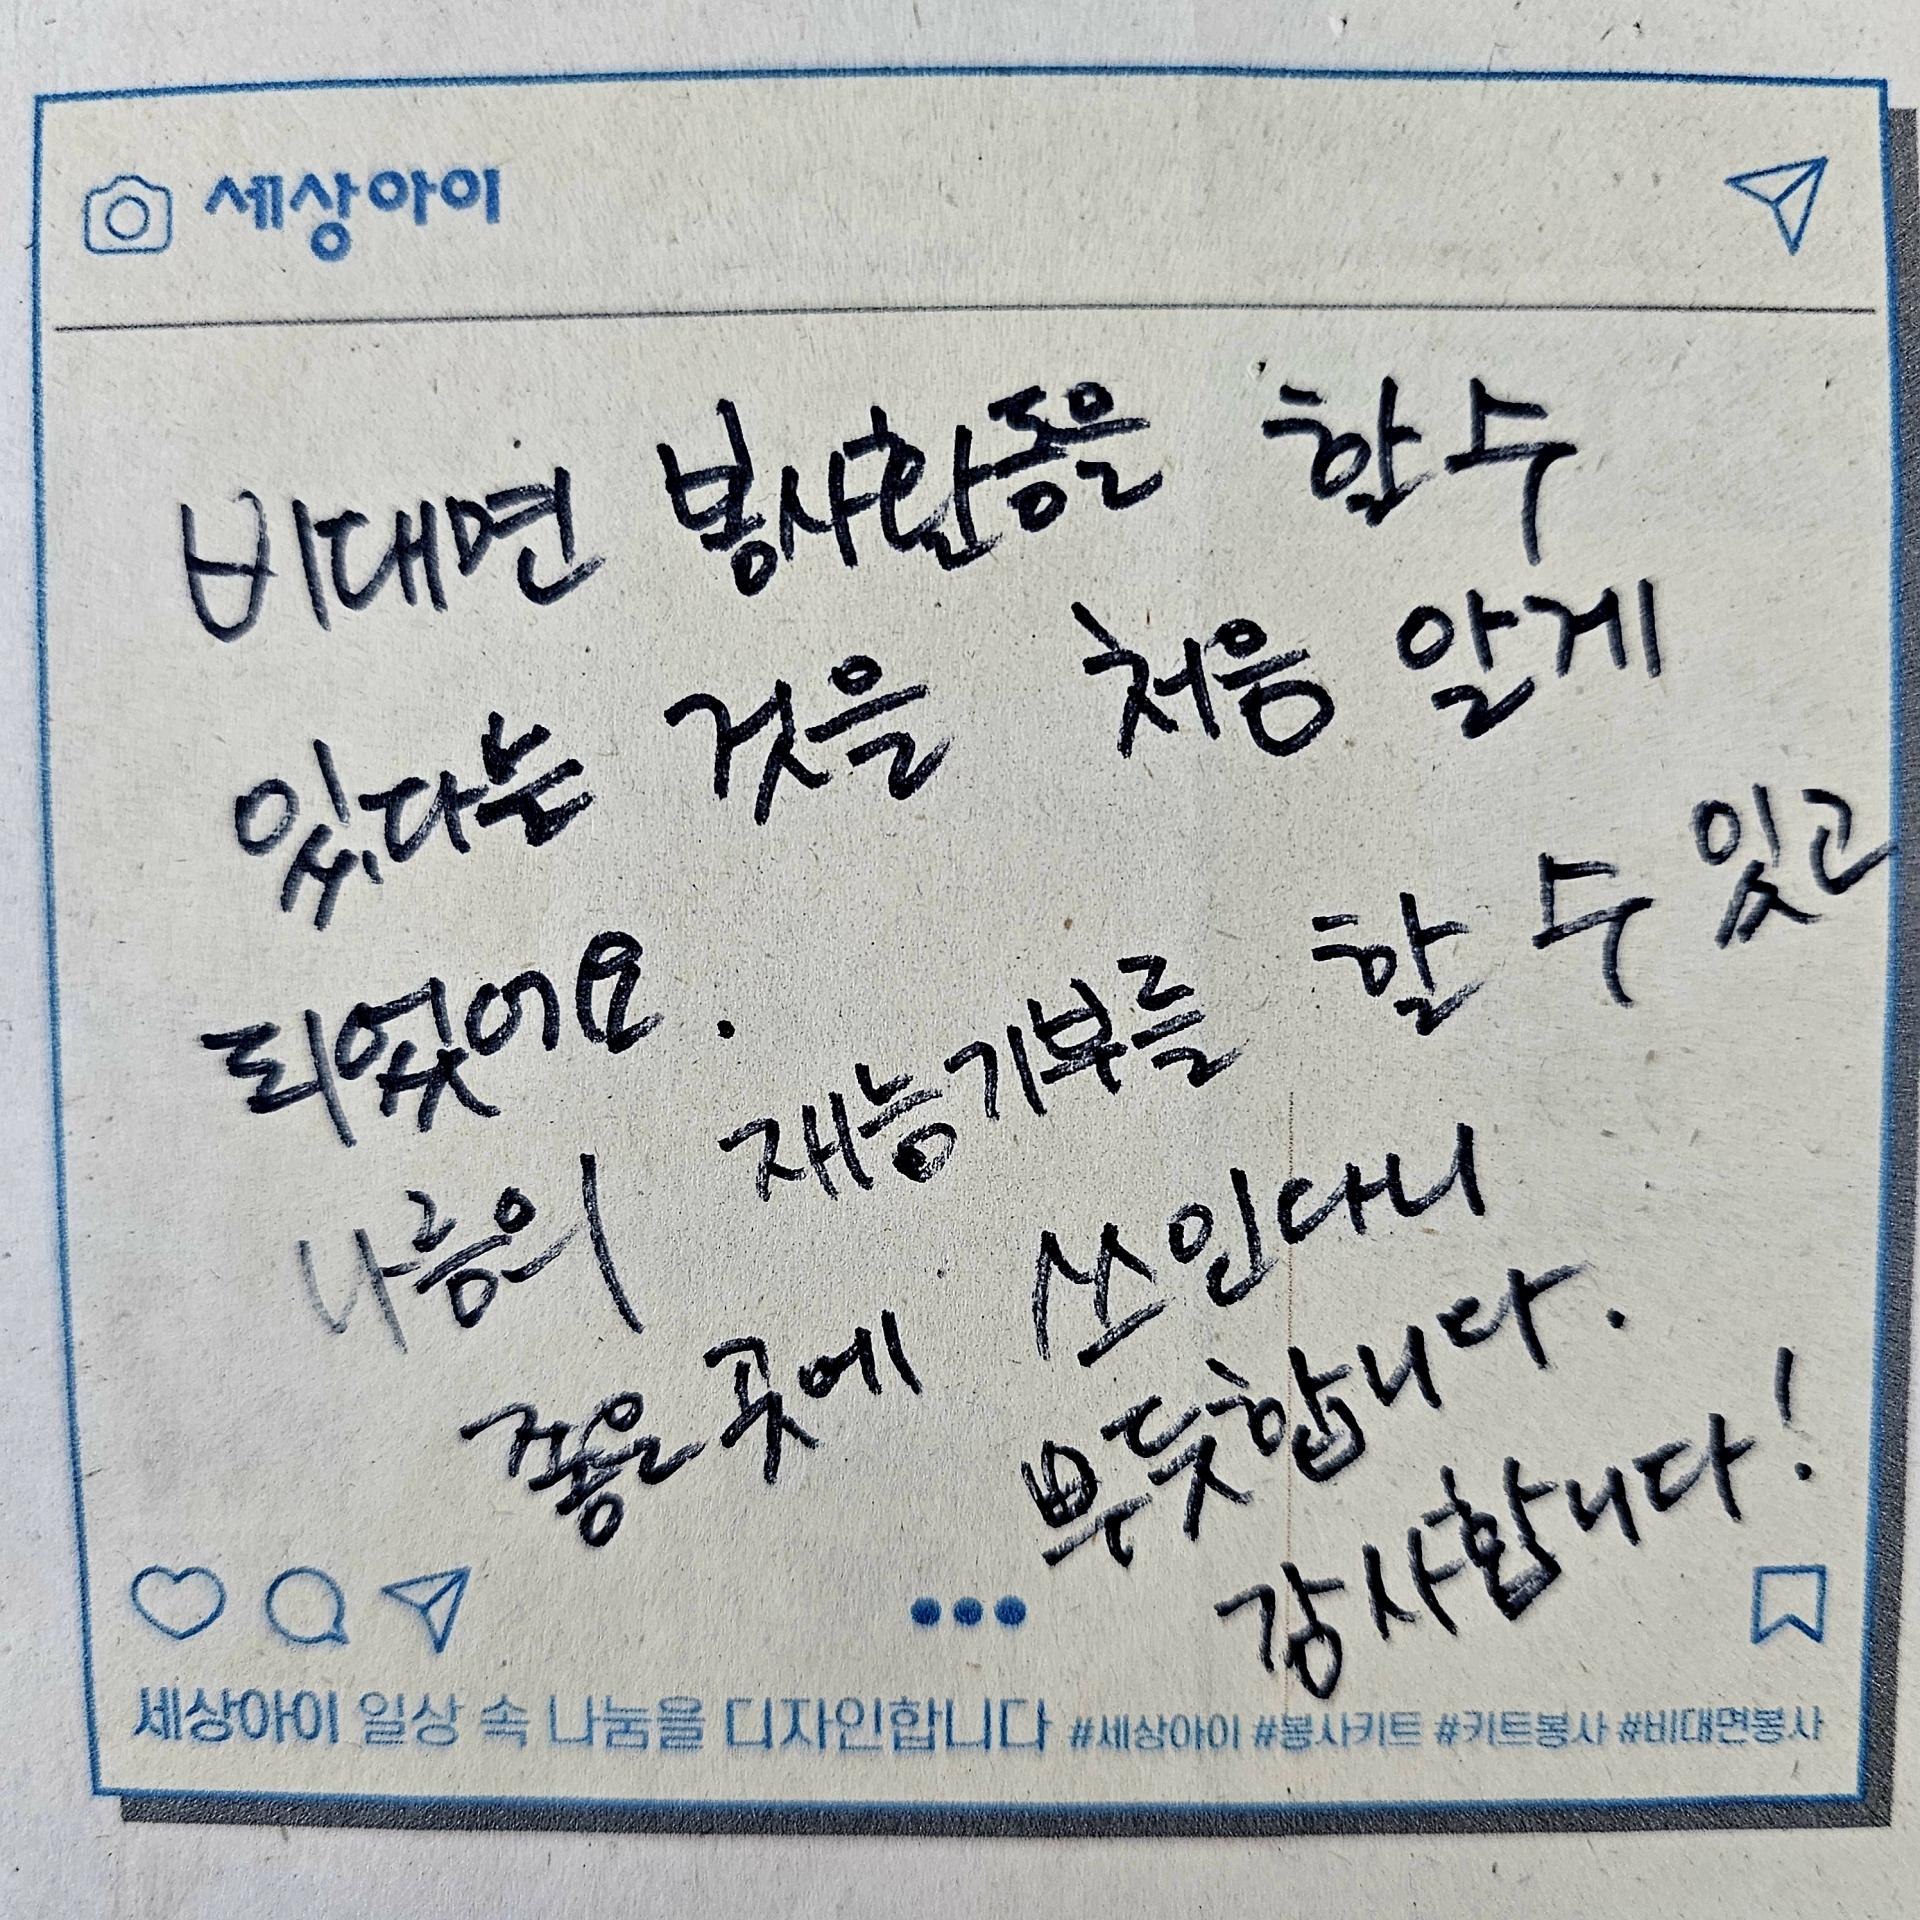 세상아이
비대면 봉사활동을 할 수
있다는 것을 처음 알게
되었어요.
나름의 재능기부를 할 수 있고
좋은 곳에 쓰인다니
뿌듯합니다.
감사합니다!
세상아이 일상 속 나눔을 디자인합니다 #세상아이 #봉사키트 #키트봉사 #비대면봉사